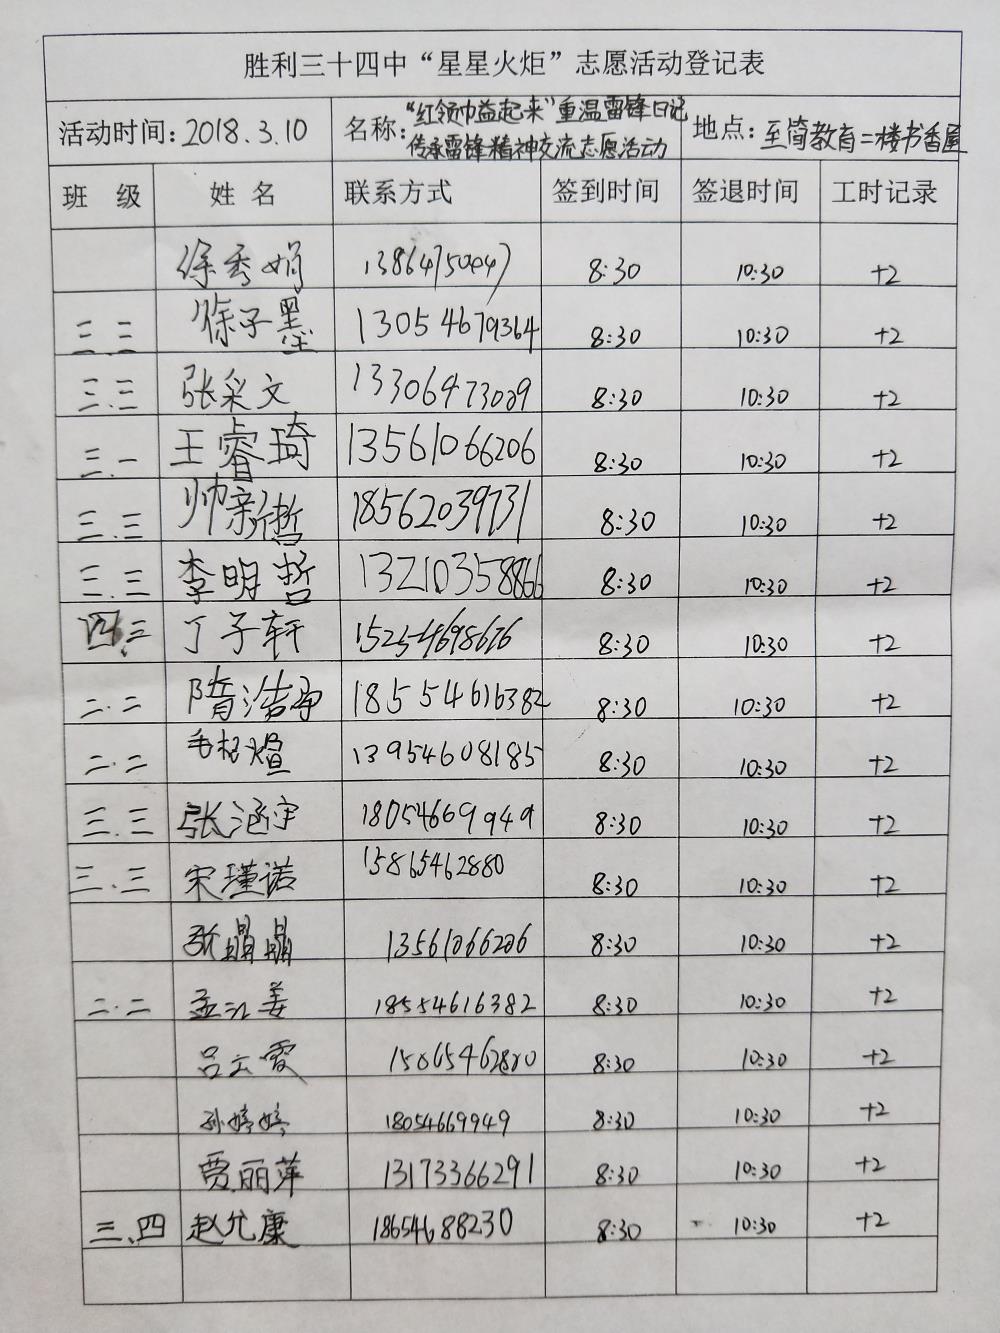 胜利三十四中“星星火炬”志愿活动登记表
活动时间：2018.3.10 名称：“红领巾益起来”重温雷锋日记 地点：至简教育二楼书香屋
传承雷锋精神交流志愿活动
班 级 姓 名 联系方式 签到时间 签退时间 工时记录
徐秀娟 13864750047 8:30 10:30 +2
三.三 徐子墨 13054679364 8:30 10:30 +2
三.三 张采文 13306473029 8:30 10:30 +2
三.一 王睿琦 13561066206 8:30 10:30 +2
三.三 帅新哲 18562039731 8:30 10:30 +2
三.三 李明哲 13210358866 8:30 10:30 +2
四.三 丁子轩 15254698676 8:30 10:30 +2
二.二 隋浩 18554616382 8:30 10:30 +2
二.二 毛 煊 13954608185 8:30 10:30 +2
三.三 张涵宇 18054669949 8:30 10:30 +2
三.三 宋瑾诺 15865462880 8:30 10:30 +2
张晶晶 13561066206 8:30 10:30 +2
二.二 孟江姜 18554616382 8:30 10:30 +2
吕云霞 15865462880 8:30 10:30 +2
孙婷婷 18054669949 8:30 10:30 +2
贾丽萍 13173366291 8:30 10:30 +2
三.四 赵允康 18654688230 8:30 10:30 +2